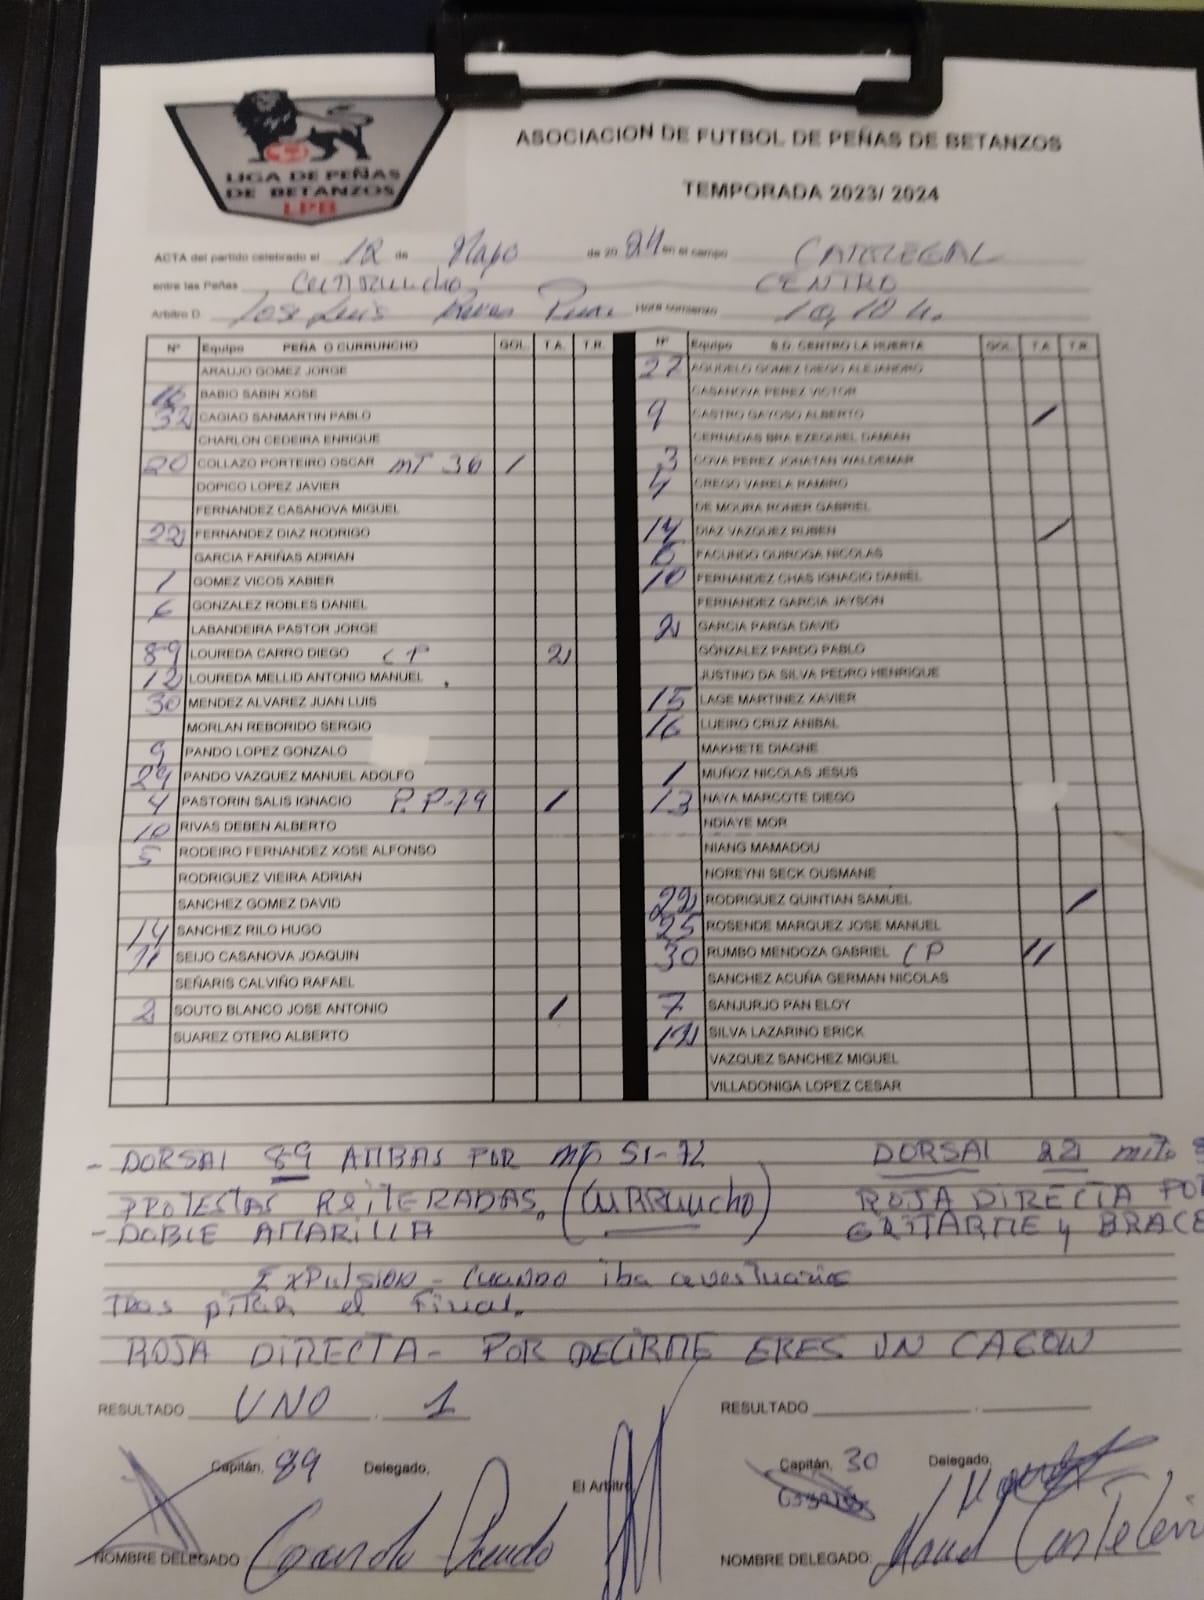 LIGA DE PEÑAS
DE BETANZOS
LPB
ASOCIACION DE FUTBOL DE PEÑAS DE BETANZOS
TEMPORADA 2023/ 2024
ACTA del partido celebrado el 12 de Mayo de 20 24 en el campo CARREGAL
entre las Peñas Curruncho, CENTRO
Arbitro D. Jose Luis Rivas Hora comienzo 10,10 h.
Nº Equipo PEÑA O CURRUNCHO GOL. T.A. T.R.
ARAUJO GOMEZ JORGE
16 BABIO SABIN XOSE
32 CAGIAO SANMARTIN PABLO
CHARLON CEDEIRA ENRIQUE
20 COLLAZO PORTEIRO OSCAR MT 36 /
DOPICO LOPEZ JAVIER
FERNANDEZ CASANOVA MIGUEL
22 FERNANDEZ DIAZ RODRIGO
GARCIA FARIÑAS ADRIAN
1 GOMEZ VICOS XABIER
6 GONZALEZ ROBLES DANIEL
LABANDEIRA PASTOR JORGE
89 LOUREDA CARRO DIEGO CP 2
12 LOUREDA MELLID ANTONIO MANUEL
30 MENDEZ ALVAREZ JUAN LUIS
MORLAN REBORIDO SERGIO
9 PANDO LOPEZ GONZALO
29 PANDO VAZQUEZ MANUEL ADOLFO
4 PASTORIN SALIS IGNACIO P.P-79 /
10 RIVAS DEBEN ALBERTO
5 RODEIRO FERNANDEZ XOSE ALFONSO
RODRIGUEZ VIEIRA ADRIAN
SANCHEZ GOMEZ DAVID
14 SANCHEZ RILO HUGO
11 SEIJO CASANOVA JOAQUIN
SEÑARIS CALVIÑO RAFAEL
2 SOUTO BLANCO JOSE ANTONIO /
SUAREZ OTERO ALBERTO
Nº Equipo S.D. CENTRO LA HUERTA GOL. T.A. T.R.
27 AGUDELO GOMEZ DIEGO ALEJANDRO
CASANOVA PEREZ VICTOR
9 CASTRO GAYOSO ALBERTO /
CERNADAS BRA EZEQUIEL DAMIAN
3 COVA PEREZ JONATAN WALDEMAR
4 CREGO VARELA RAMIRO
DE MOURA ROHER GABRIEL
14 DIAZ VAZQUEZ RUBEN /
FACUNDO QUIROGA NICOLAS
10 FERNANDEZ CHAS IGNACIO DANIEL
FERNANDEZ GARCIA JAYSON
2 GARCIA PARGA DAVID
GONZALEZ PARDO PABLO
JUSTINO DA SILVA PEDRO HENRIQUE
15 LAGE MARTINEZ XAVIER
16 LUEIRO CRUZ ANIBAL
MAKHETE DIAGNE
1 MUÑOZ NICOLAS JESUS
13 NAYA MARCOTE DIEGO
NDIAYE MOR
NIANG MAMADOU
NOREYNI SECK OUSMANE
22 RODRIGUEZ QUINTIAN SAMUEL /
25 ROSENDE MARQUEZ JOSE MANUEL
30 RUMBO MENDOZA GABRIEL CP //
SANCHEZ ACUÑA GERMAN NICOLAS
7 SANJURJO PAN ELOY
SILVA LAZARINO ERICK
VAZQUEZ SANCHEZ MIGUEL
VILLADONIGA LOPEZ CESAR
- DORSAL 89 AMBAS POR 51-72
PROTESTAS REITERADAS. (CURRUNCHO)
- DOBLE AMARILLA
DORSAL 22
ROJA DIRECTA POR
GRITARME y BRACE
EXPULSION - CUANDO iba a vestuarios
TRAS piTAR el Final.
ROJA DIRECTA - POR DECIRME ERES UN CAGON
RESULTADO UNO . 1
RESULTADO
Capitán, 89 Delegado, El Arbitro
Capitán, 30 Delegado,
NOMBRE DELEGADO
NOMBRE DELEGADO: